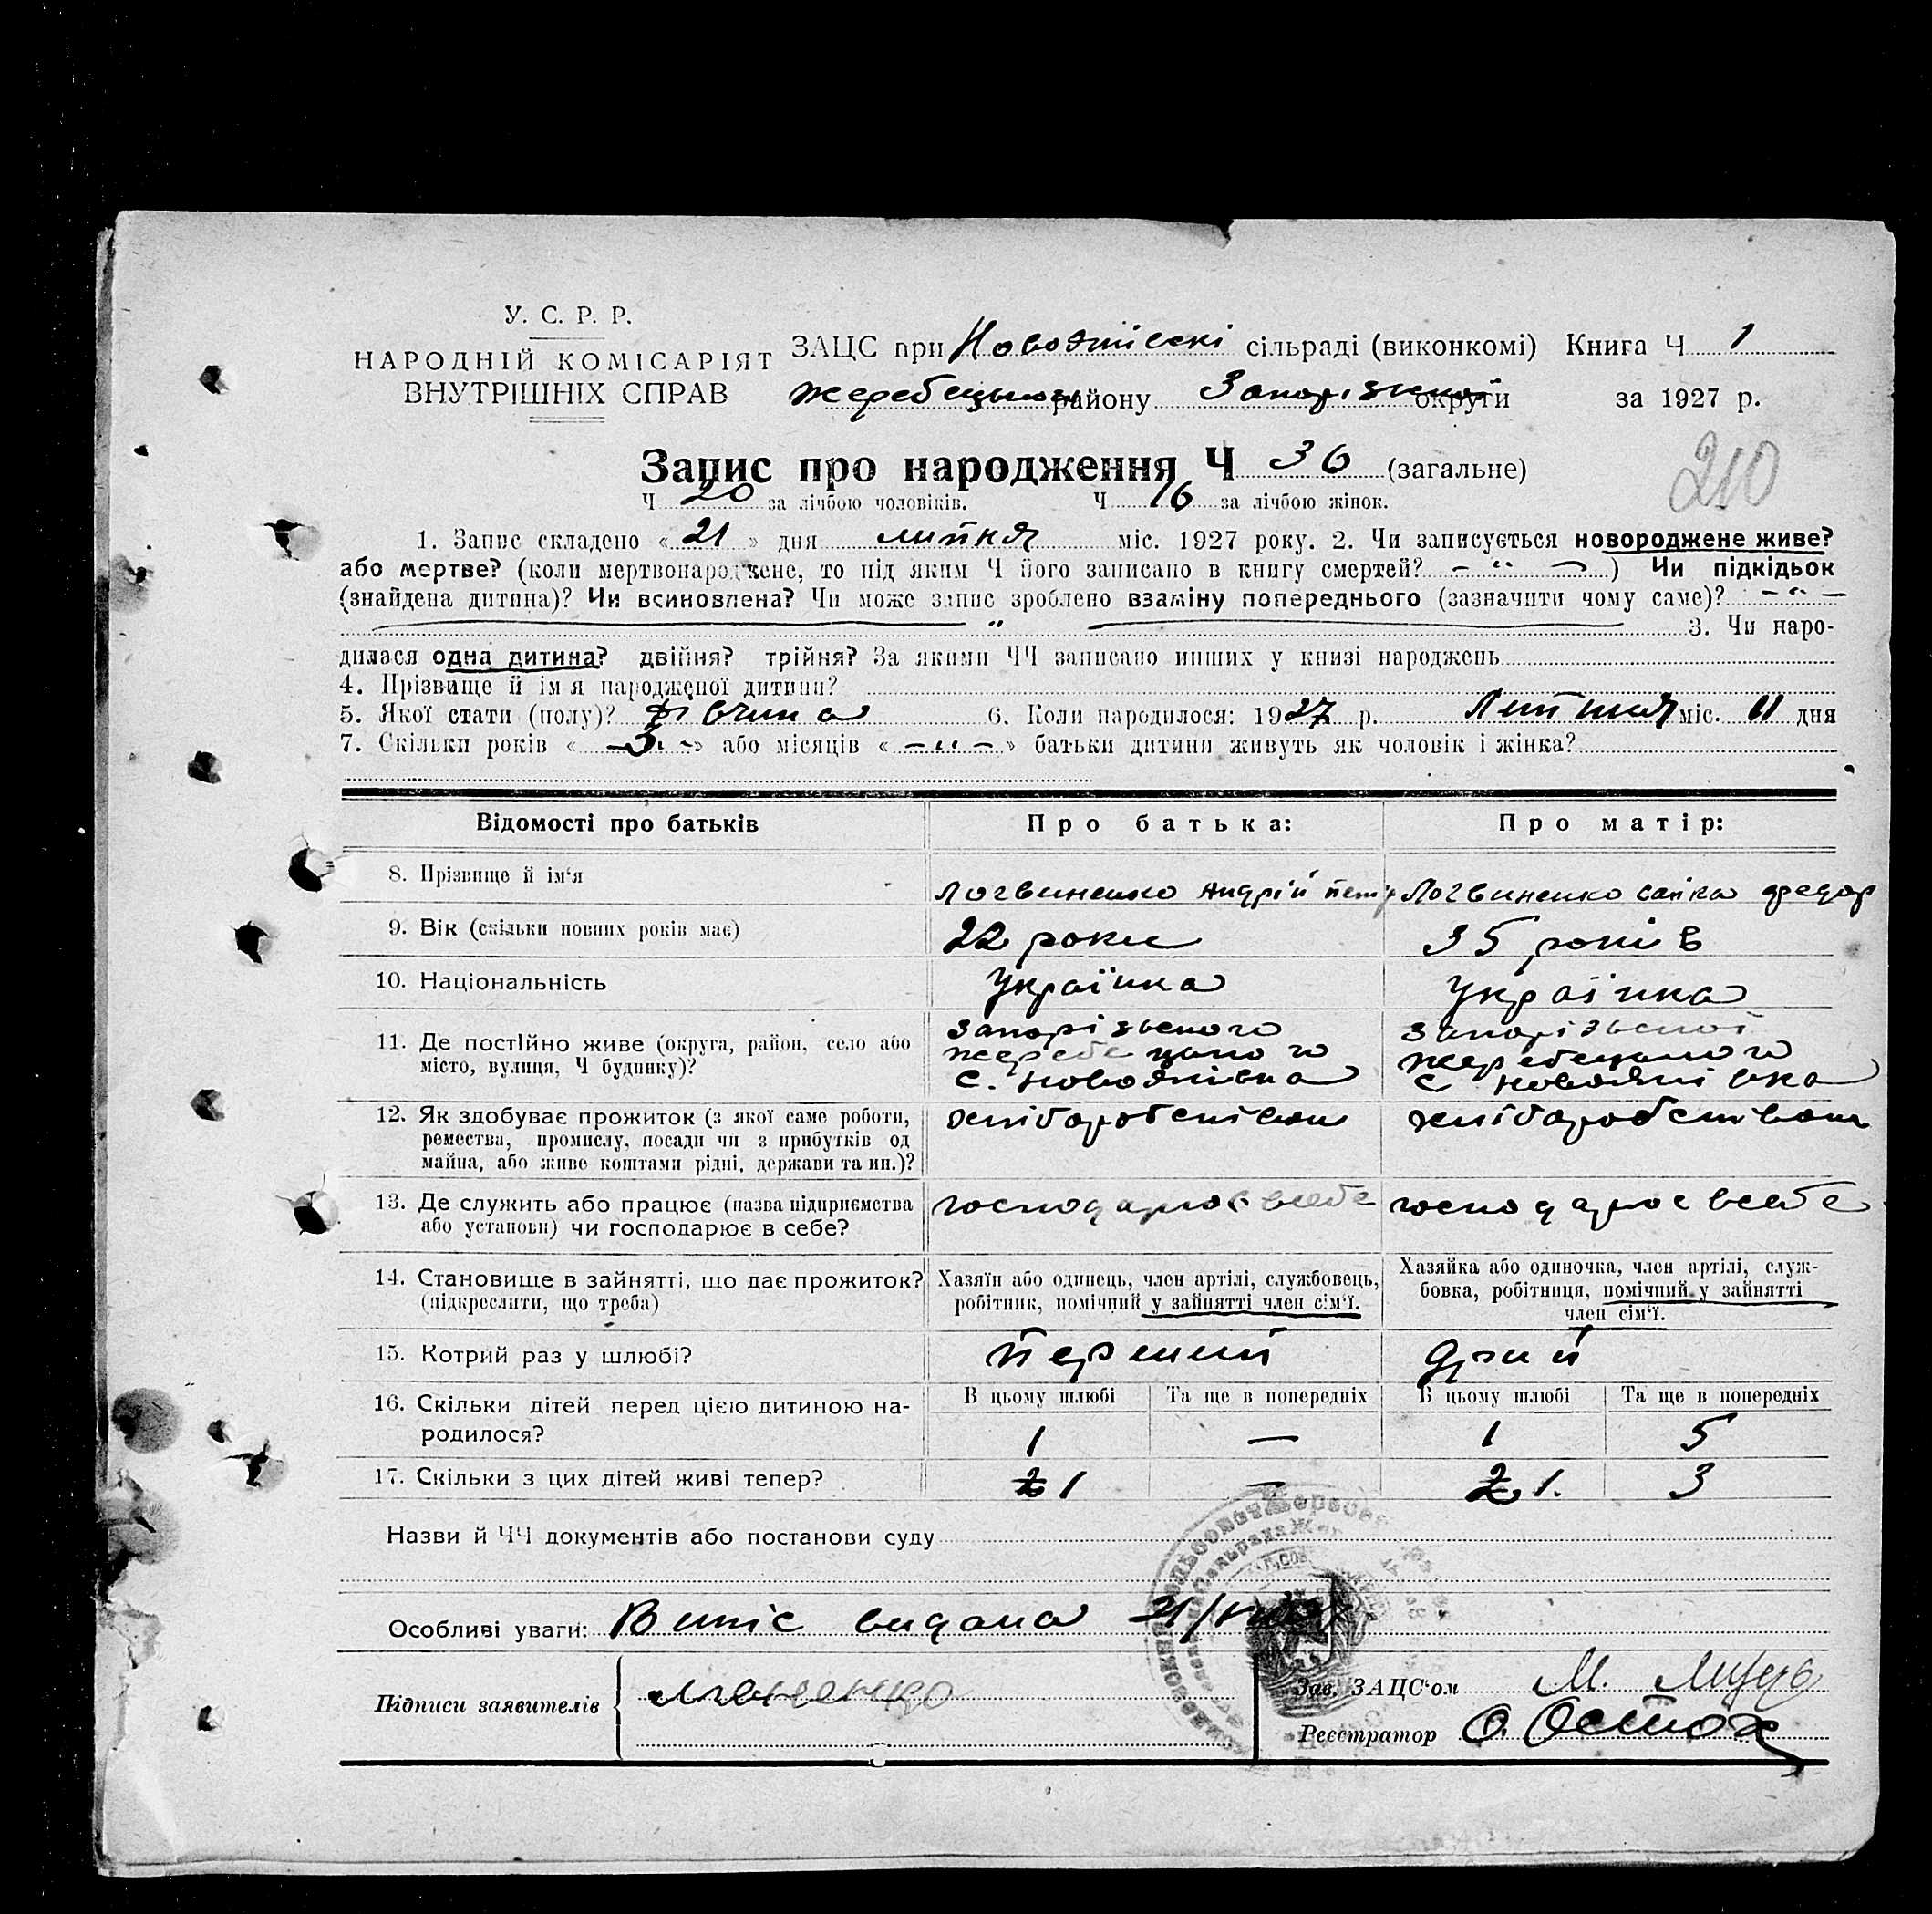 У. С. Р. Р.
НАРОДНІЙ КОМІСАРІЯТ
ВНУТРІШНІХ СПРАВ
ЗАЦС при сільраді (виконкомі) Книга Ч 1
Жеребецького району Запорізької округи за 1927 р.
Запис про народження Ч 36 (загальне)
210
Ч 20 за лічбою чоловіків. Ч 16 за лічбою жінок.
1. Запис складено « 21 » дня липня міс. 1927 року. 2. Чи записується новороджене живе?
або мертве? (коли мертвонароджене, то під яким Ч його записано в книгу смертей? – " – ) Чи підкідьок
(знайдена дитина)? Чи всиновлена? Чи може запис зроблено взаміну попереднього (зазначити чому саме)? – " –
" 3. Чи наро-
дилася одна дитина? двійня? трійня? За якими ЧЧ записано инших у книзі народжень
4. Прізвище й імя народженої дитини?
5. Якої стати (полу)? дівчина 6. Коли народилося: 1927 р. Липня міс. 11 дня
7. Скільки років « – 3 – » або місяців « – " – » батьки дитини живуть як чоловік і жінка?
Відомості про батьків Про батька: Про матір:
8. Прізвище й ім‘я Логвиненко Андрій Петр Логвиненко Федор
9. Вік (скільки повних років має) 22 роки 35 років
10. Національність Українка Українка
11. Де постійно живе (округа, район, село або
місто, вулиця, Ч будинку)?
Запорізького Запорізької
Жеребецького Жеребецького
с. Новоянівка с Новоянівка
12. Як здобуває прожиток (з якої саме роботи,
ремества, промислу, посади чи з прибутків од
майна, або живе коштами рідні, держави та ин.)?
хліборобством хліборобством
13. Де служить або працює (назва підприємства
або установи) чи господарює в себе?
господарює всебе господарює всебе
14. Становище в зайнятті, що дає прожиток?
(підкреслити, що треба)
Хазяїн або одинець, член артілі, службовець,
робітник, помічний у зайнятті член сім‘ї.
Хазяйка або одиночка, член артілі, служ-
бовка, робітниця, помічний у зайнятті
член сім‘ї.
15. Котрий раз у шлюбі? Перший
16. Скільки дітей перед цією дитиною на-
родилося?
В цьому шлюбі Та ще в попередніх В цьому шлюбі Та ще в попередніх
1 — 1 5
17. Скільки з цих дітей живі тепер? 2 1 — 2 1. 3
Назви й ЧЧ документів або постанови суду
Особливі уваги: Випіс видана
Підписи заявителів
Зав. ЗАЦС‘ом М.
Реєстратор О.